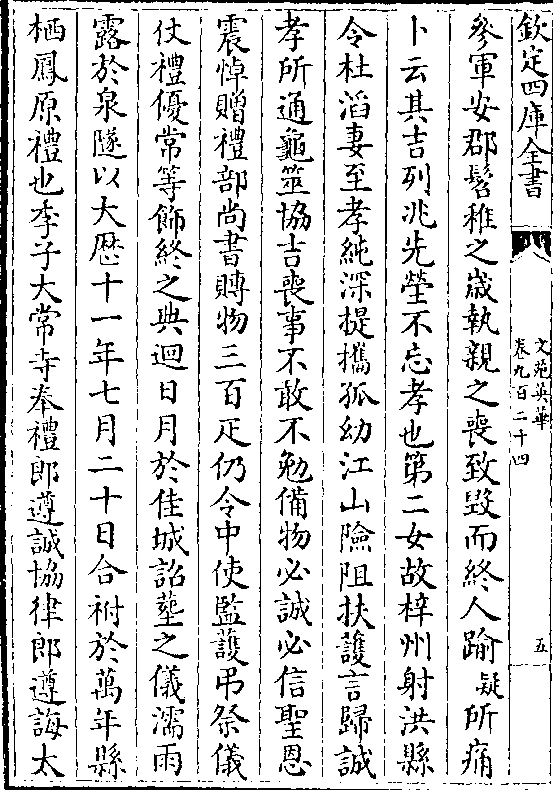 欽定四庫全書
文苑英華
卷九百二十四
五
參軍安郡髫稚之歳執親之喪致毀而終人踰疑所痛
卜云其吉列兆先塋不忘孝也第二女故梓州射洪縣
令杜滔妻至孝純深提攜孤幼江山險阻扶䕶言歸誠
孝所通龜筮協吉喪事不敢不勉備物必誠必信聖恩
震悼贈禮部尚書賻物三百疋仍令中使監䕶弔祭儀
仗禮優常等飾終之典迴日月於佳城詔塟之儀濡雨
露於泉隧以大厯十一年七月二十日合祔於萬年縣
栖鳳原禮也季子大常寺奉禮郎遵誠協律郎遵誨太